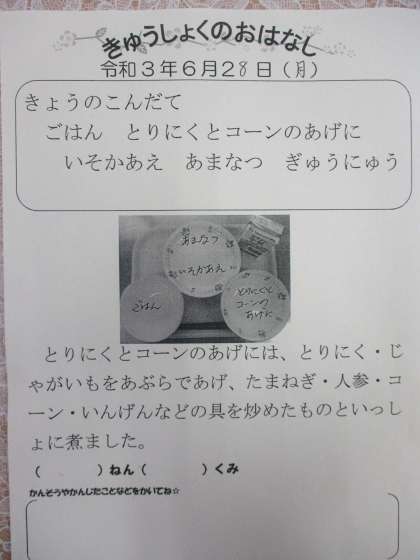 きゅうしょくのおはなし
令和3年6月28日(月)
きょうのこんだて
ごはん とりにくとコーンのあげに
いそかあえ あまなつ ぎゅうにゅう
あまなつ
いそかあえ
ごはん
とりにくと
コーンの
あげに
とりにくとコーンのあげには、とりにく・じ
ゃがいもをあぶらであげ、たまねぎ・人参・コ
ーン・いんげんなどの具を炒めたものといっし
ょに煮ました。
( )ねん( )くみ
かんそうやかんじたことなどをかいてね☆